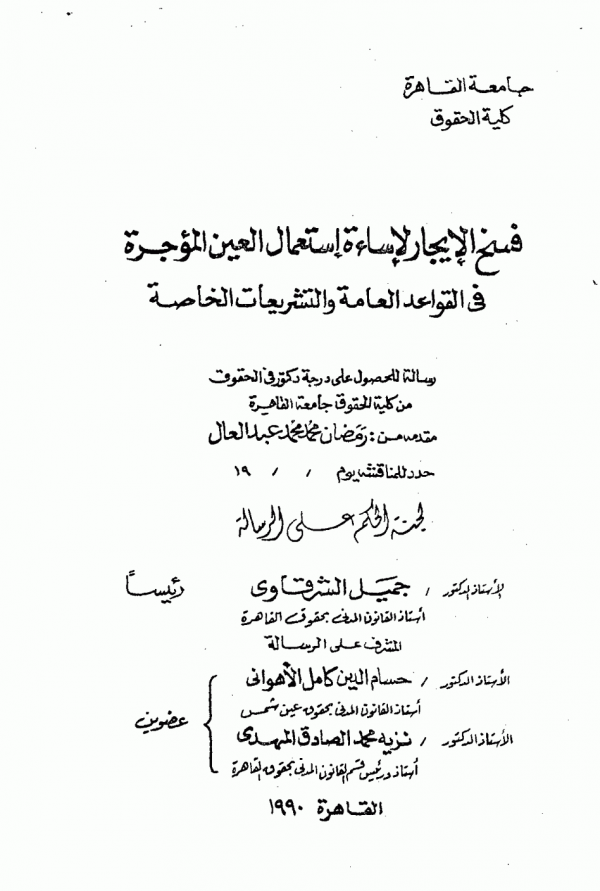 جامعة القاهرة
كلية الحقوق
فسخ الإيجار لإساءة إستعمال العين المؤجرة
فى القواعد العامة والتشريعات الخاصة
رسالة للحصول على درجة دكتور فى الحقوق
من كلية الحقوق جامعة القاهرة
مقدمه من : رمضان محمد محمد عبد العال
حدد للمناقشه يوم / / ١٩
لجنة الحكم على الرسالة
الأستاذ الدكتور / جميل الشرقاوى رئيساً
أستاذ القانون المدنى بحقوق القاهرة
المشرف على الرسالة
الأستاذ الدكتور / حسام الدين كامل الأهوانى
أستاذ القانون المدنى بحقوق عين شمس
عضوين
الأستاذ الدكتور / نزيه محمد الصادق المهدى
أستاذ ورئيس قسم القانون المدنى بحقوق القاهرة
القاهرة ١٩٩٠